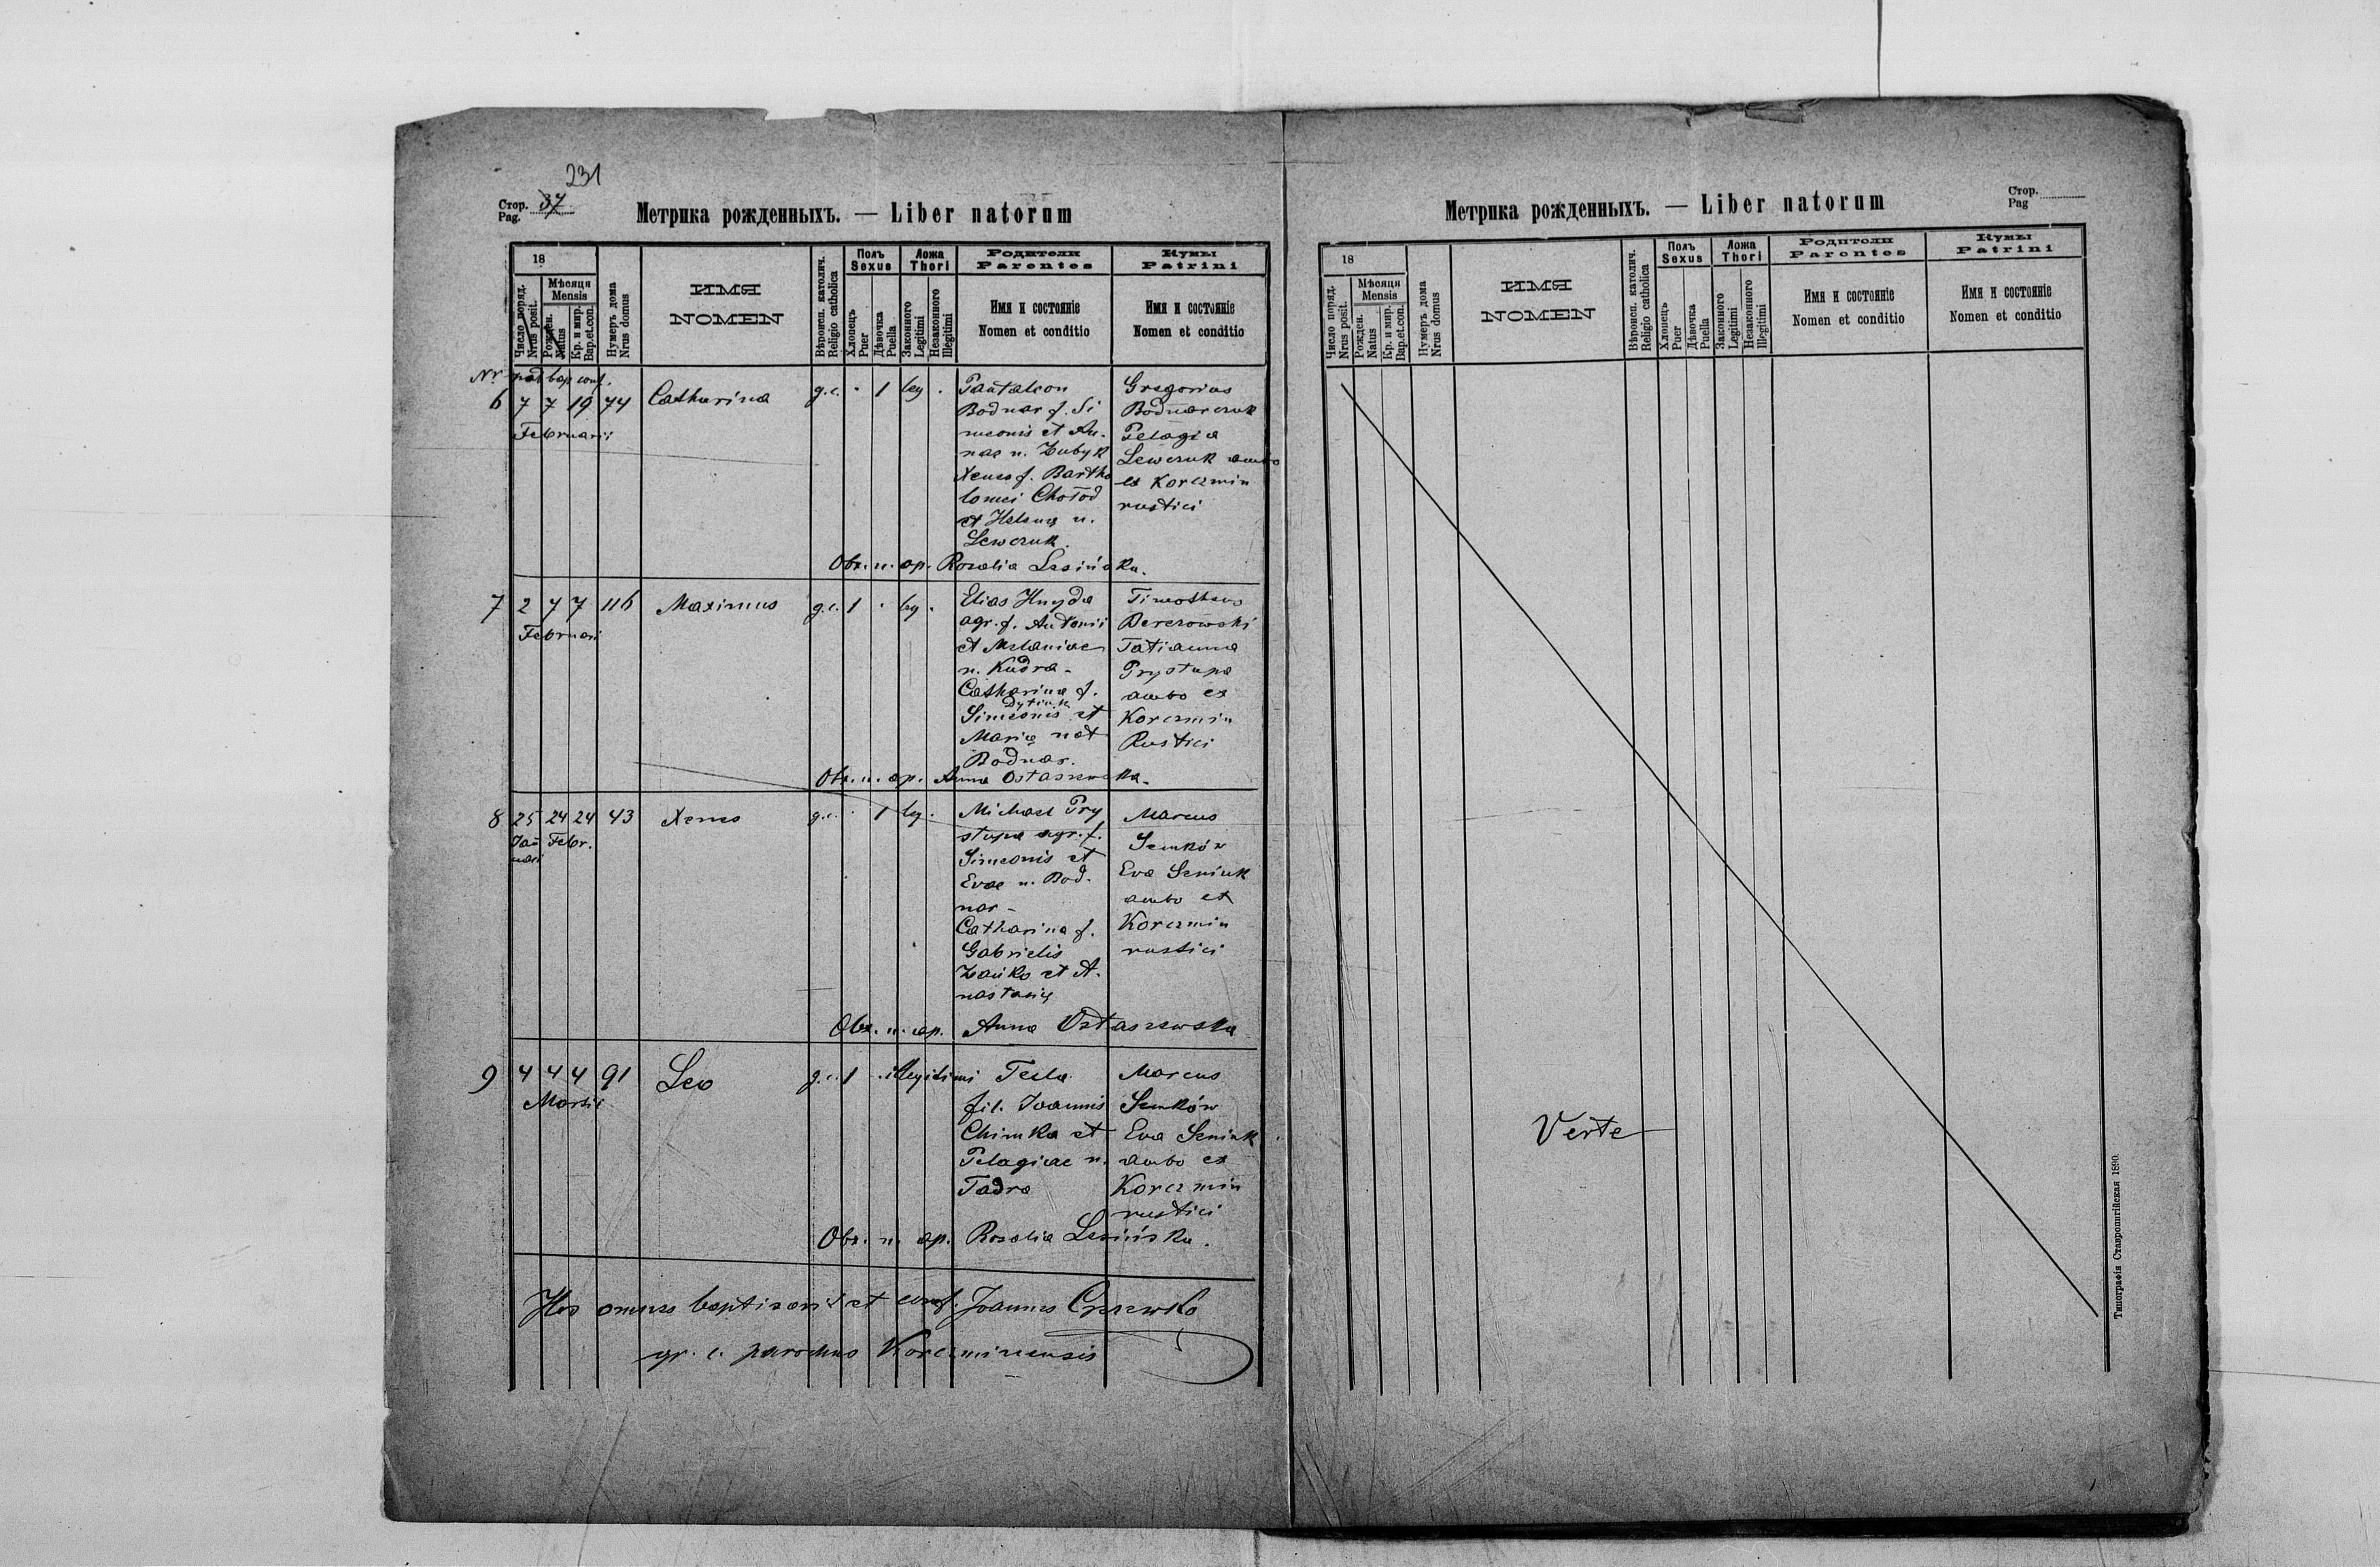 231
Стор. 37.
Pag.
Метрика рожденныхъ. — Liber natorum
18
Число поряд.
Nrus posit.
Мѣсяця
Mensis
Рожден.
Natus
Кр. и мир.
Bap.et.con.
Нумеръ дома
Nrus domus
ИМЯ
NOMEN
Вѣроисп. католич.
Religio catholica
Полъ
Sexus
Хлопець
Puer
Дѣвочка
Puella
Ложа
Thori
Законного
Legitimi
Незаконного
Illegitimi
Родители
Parentes
Имя и состояніе
Nomen et conditio
Кумы
Patrini
Имя и состояніе
Nomen et conditio
Nr nat bap conf.
6 7 7 19 74 Catharina g.c. · 1 leg ·
Februarii
Pantaleon
Bodnar f. Si
meonis et An-
nae n. Zubyk
Xenes f. Bartho
lomei Chołod
et Helenę n.
Lewczuk.
Gregorius
Bodnarczuk
Pelagia
Lewczuk ambo
ex Korczmin
rustici
Obs. n. ap. Rozalia Lesińska.
7 2 7 7 116 Maximus g.c. 1 · leg ·
Februari
Elias Hnyda
agr. f. Antonii
et Melaniae
n. Kudra -
Catharina f.
Dytiuk
Simeonis et
Marię nat
Bodnar.
Timotheus
Berezowski
Tatianna
Prystupa
ambo ex
Korczmin
Rustici
Obs. n. ap. Anna Ostaszewska.
8 25 24 24 43 Xenes g.c. · 1 leg.
Jan Febr.
uari
Michael Pry
stupa agr. f.
Simeonis et
Evae n. Bod.
nar -
Catharina f.
Gabrielis
Zańko et A.
nastasię
Marcus
Semków
Eva Seniuk
ambo ex
Korczmin
rustici
Obs. n. ap. Anna Ostaszewska
9 4 4 4 91 Leo g.c. 1 · illegitimi
Martii
Tecla
fil. Joannis
Chimka et
Pelagiae n.
Tadra
Marcus
Semków
Eva Seniuk
ambo ex
Korczmin
rustici
Obs. n. ap. Rozalia Lesińska.
Hos omnes baptisavit et conf. Joannes
gr. c. parochus Korczminensis
Метрика рожденныхъ. — Liber natorum
Стор.
Pag
18
Число поряд.
Nrus posit.
Мѣсяця
Mensis
Рожден.
Natus
Кр. и мир.
Bap.et.con.
Нумеръ дома
Nrus domus
ИМЯ
NOMEN
Вѣроисп. католич.
Religio catholica
Полъ
Sexus
Хлопець
Puer
Дѣвочка
Puella
Ложа
Thori
Законного
Legitimi
Незаконного
Illegitimi
Родители
Parentes
Имя и состояніе
Nomen et conditio
Кумы
Patrini
Имя и состояніе
Nomen et conditio
Verte
Типографія Ставропигійская 1890.